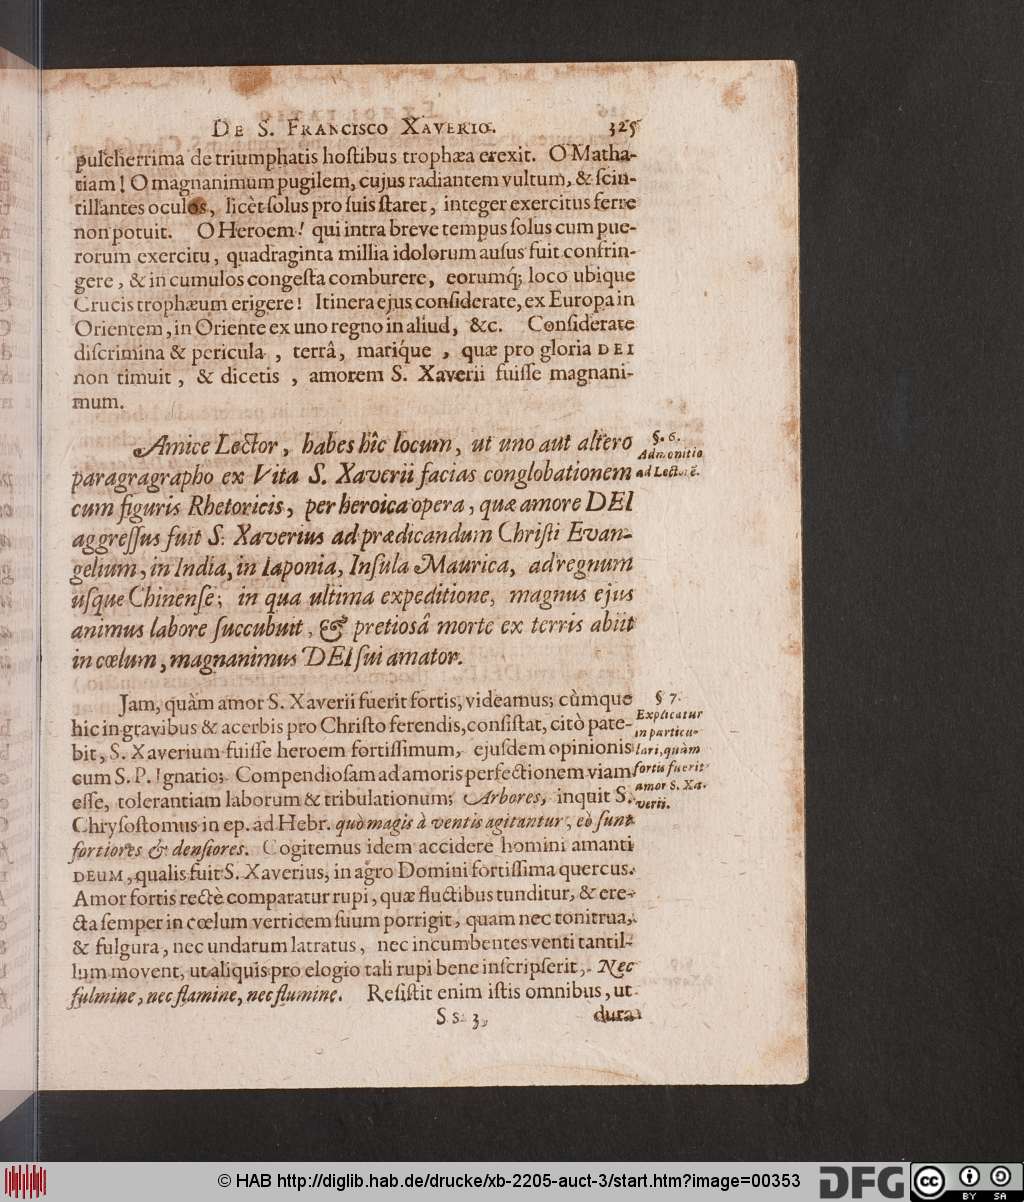 DE S. FRANCISCO XAVERIO. 325
pulcherrima de triumphatis hoſtibus trophæa erexit. O Matha-
tiam! O magnanimum pugilem, cujus radiantem vultum, & ſcin-
tillantes oculos, licèt ſolus pro ſuis ſtaret, integer exercitus ferre
non potuit. O Heroem! qui intra breve tempus ſolus cum pue-
rorum exercitu, quadraginta millia idolorum auſus fuit confrin-
gere, & in cumulos congeſta comburere, eorumq́; loco ubique
Crucis trophæum erigere! Itinera ejus conſiderate, ex Europa in
Orientem, in Oriente ex uno regno in aliud, &c. Conſiderate
diſcrimina & pericula, terrâ, mariq́ue, quæ pro gloria DEI
non timuit, & dicetis, amorem S. Xaverii fuiſſe magnani-
mum.
Amice Lector, habes hîc locum, ut uno aut altero
paragragrapho ex Vita S. Xaverii facias conglobationem
cum figuris Rhetoricis, per heroica opera, quæ amore DEI
aggreſſus fuit S. Xaverius ad prædicandum Chriſti Evan-
gelium, in India, in Iaponia, Inſula Maurica, ad regnum
uſque Chinenſe; in qua ultima expeditione, magnus ejus
animus labore ſuccubuit, & pretiosâ morte ex terris abiit
in cœlum, magnanimus DEI ſui amator.
§. 6.
Admonitio
ad Lectorē.
Jam, quàm amor S. Xaverii fuerit fortis, videamus; cùmque
hic in gravibus & acerbis pro Chriſto ferendis, conſiſtat, citò pate-
bit, S. Xaverium fuiſſe heroem fortiſſimum, ejuſdem opinionis
cum S. P. Ignatio; Compendioſam ad amoris perfectionem viam
eſſe, tolerantiam laborum & tribulationum; Arbores, inquit S.
Chryſoſtomus in ep. ad Hebr. quò magis à ventis agitantur, eò ſunt
fortiores & denſiores. Cogitemus idem accidere homini amanti
DEUM, qualis fuit S. Xaverius, in agro Domini fortiſſima quercus.
Amor fortis rectè comparatur rupi, quæ fluctibus tunditur, & ere-
cta ſemper in cœlum verticem ſuum porrigit, quam nec tonitrua,
& fulgura, nec undarum latratus, nec incumbentes venti tantil-
lum movent, ut aliquis pro elogio tali rupi bene inſcripſerit, Nec
fulmine, nec flamine, nec flumine. Reſiſtit enim iſtis omnibus, ut
§ 7.
Explicatur
in particu-
lari, quàm
fortis fuerit
amor S. Xa-
verii.
S s 3 dura
© HAB http://diglib.hab.de/drucke/xb-2205-auct-3/start.htm?image=00353
DFG
cc
BY SA